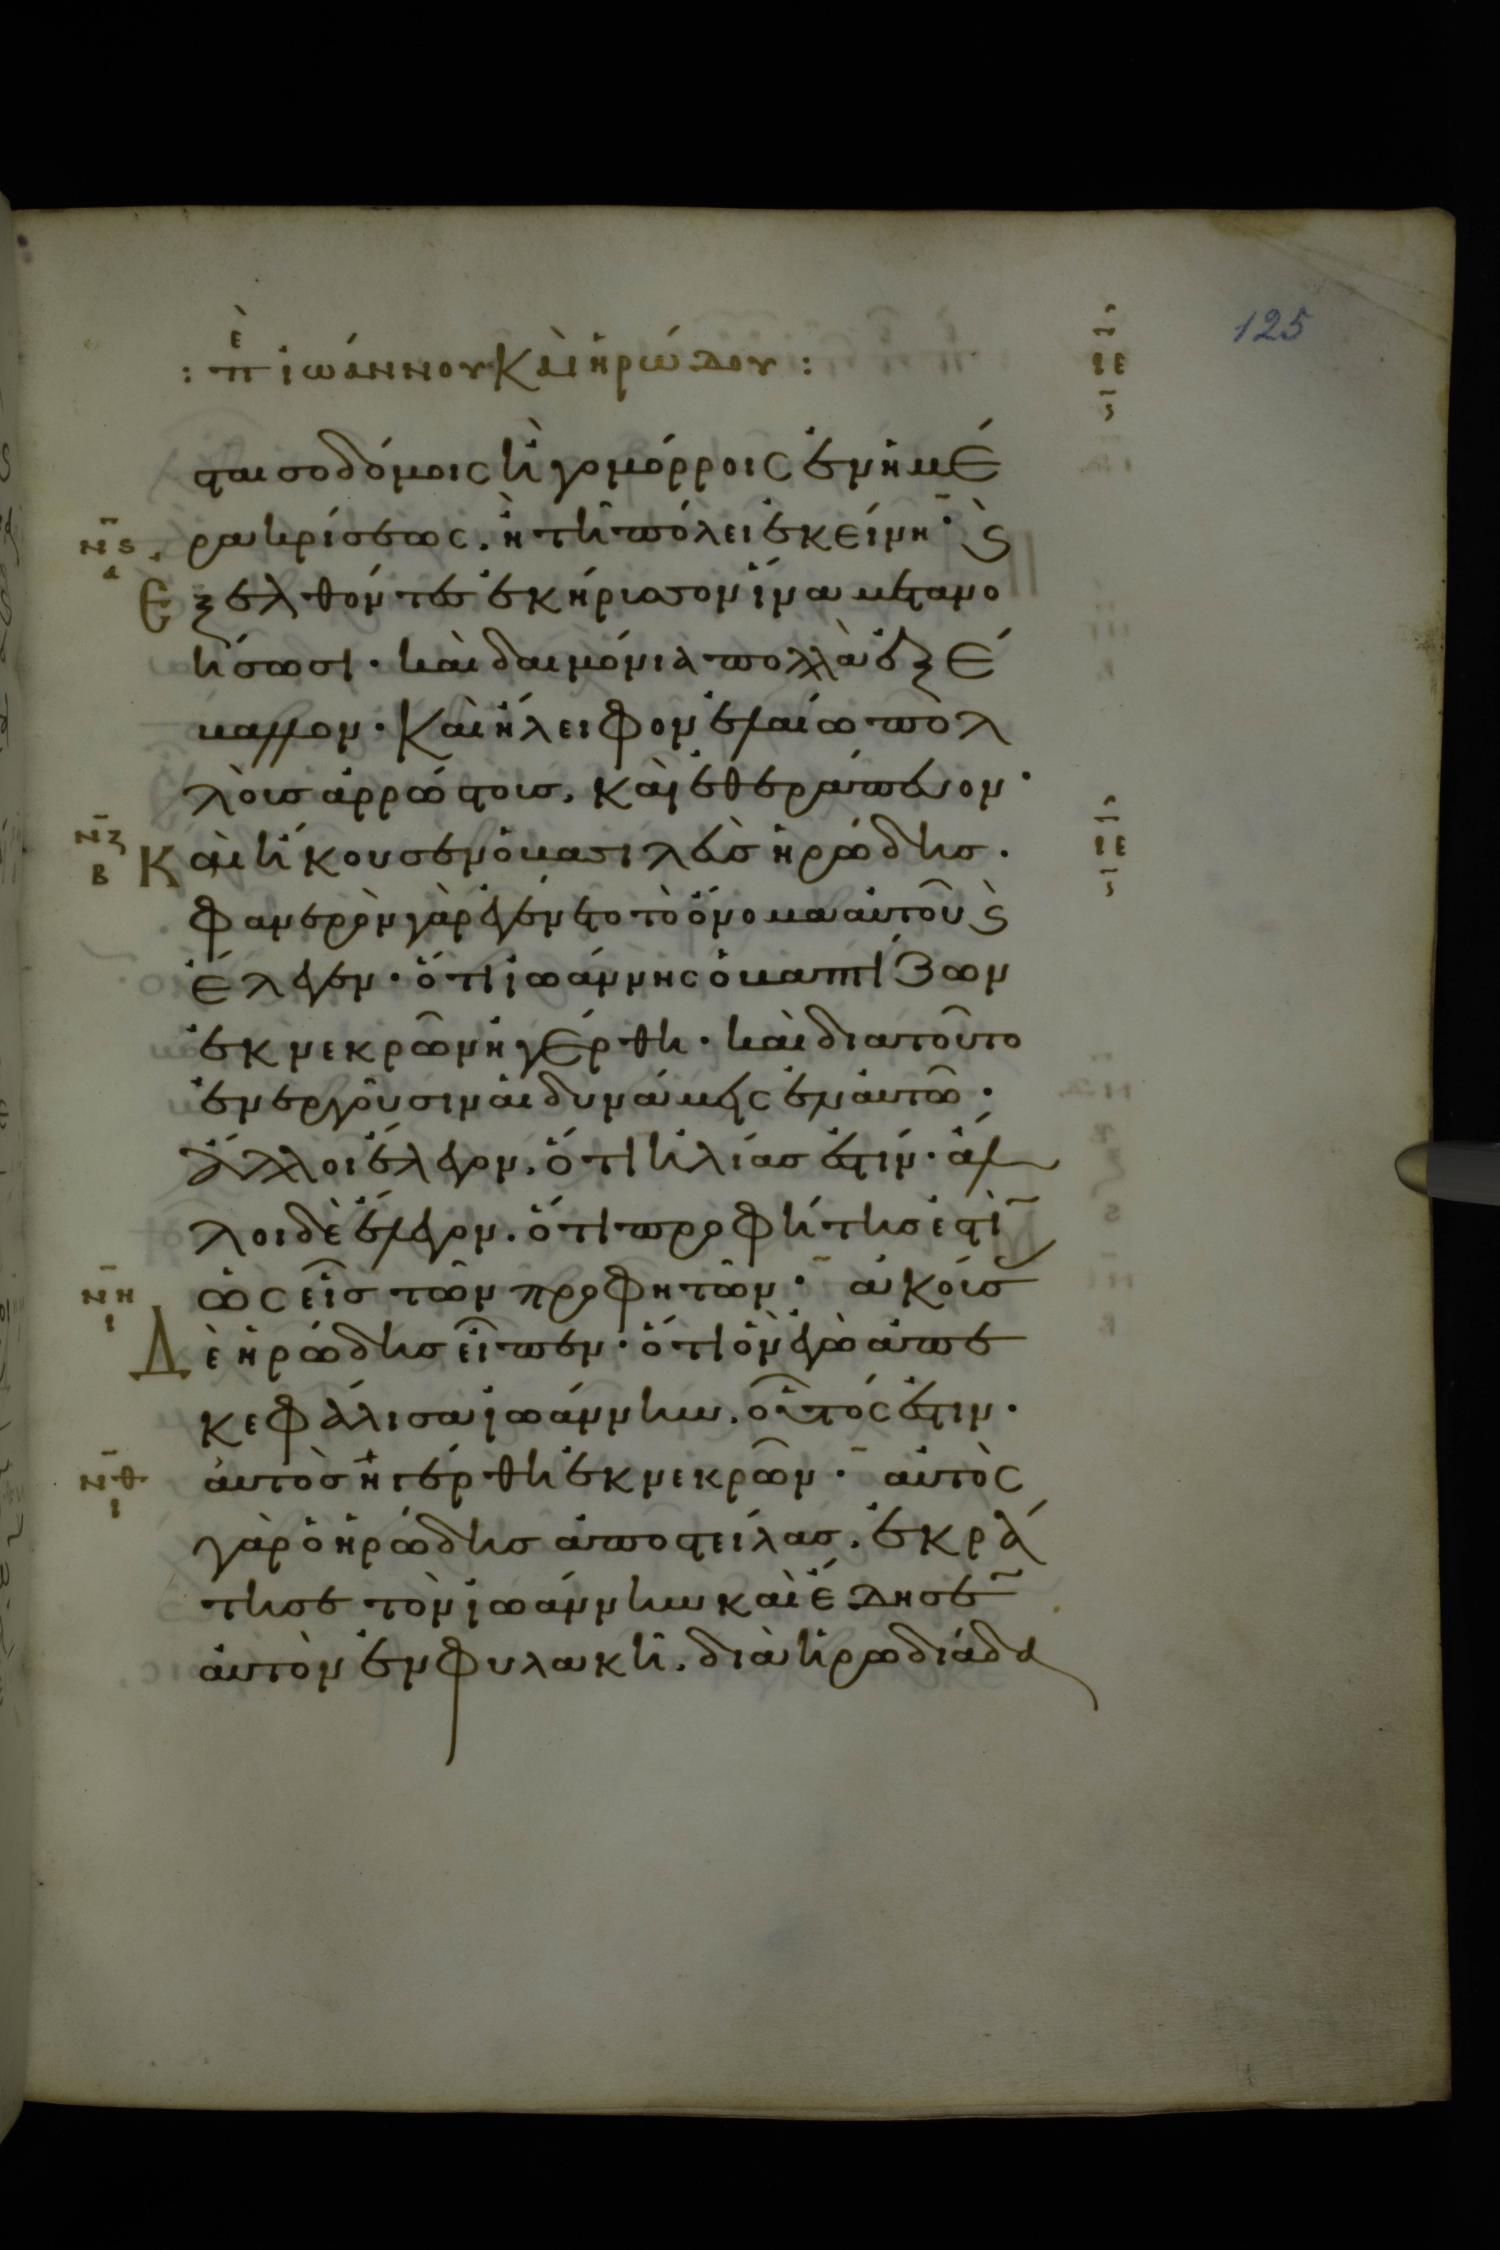 125
: πε ιωάννου Και ηρώδου :
ται σοδόμοις ἢ γομόρροις ἐν ἡμέ
ρα κρίσεως. ἢ τῆ πόλει ἐκείνη· ϛ
Ἐξελθόντες ἐκήρυσσον ἵνα μετανο
ήσωσι· και δαιμόνια πολλὰ ἐξέ
βαλλον· Και ἤλειφον ἐλαίω πολ
λοὺσ ἀρρώστουσ, και ἐθεράπευον·
Και ἤκουσεν ὁ βασιλεὺσ ἡρώδησ.
φανερὸν γὰρ ἐγένετο τὸ ὄνομα αὐτοῦ ϛ
ἔλεγεν· ὅτι ἰωάννης ὁ βαπτίζων
ἐκ νεκρῶν ἠγέρθη· και διατοῦτο
ἐνεργοῦσιν αἱ δυνάμεις ἐν αὐτῶ·
Ἄλλοι ἔλεγον. ὅτι ἠλίασ ἐστίν· ἄλ
λοι δὲ ἔλεγον. ὅτι προφήτησ ἐστὶν
ὡς εἷσ τῶν προφητῶν· ἀκούσ
Δὲ ἡρώδησ εἶπεν· ὅτι ὃν ἐγὼ ἀπε
κεφάλισα ἰωάννην. οὗτός ἐστιν·
αὐτὸσ ἠγέρθη ἐκ νεκρῶν· αὐτὸς
γὰρ ὁ ἡρώδησ ἀποστείλασ. ἐκρά
τησε τὸν ἰωάννην και ἔδησεν
αὐτὸν ἐν φυλακῆ. διὰ ἡρωδιάδα
νϛ
α
νζ
β
νη
ι
νθ
ι
ιε
ιε